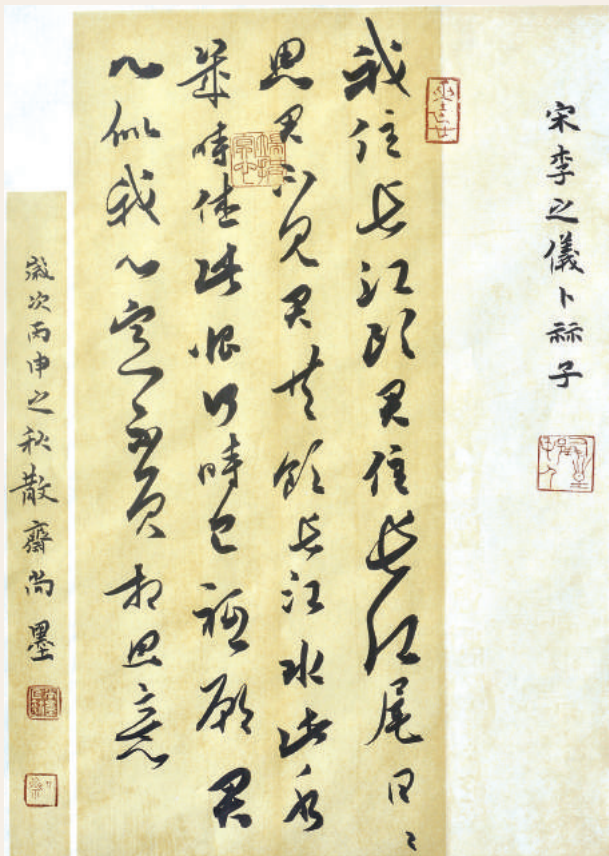 宋李之儀卜祘子
我住長江頭君住長江尾日々
思君不見君共飲長江水此水
幾時休此恨何時已祗願君
心似我心定不負相思意
歲次丙申之秋散齋尚墨